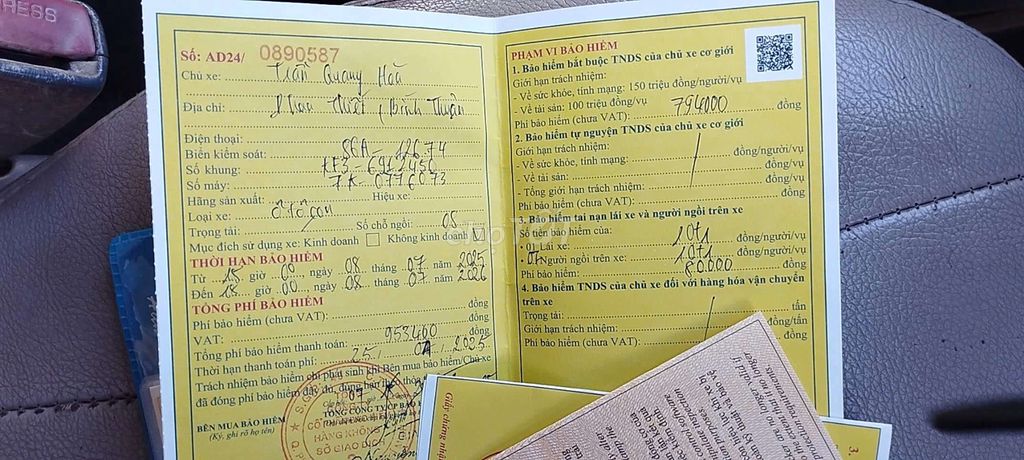 PRESS
Số: AD24/ 0890587
Chủ xe: Trần Quang Hoà
Địa chỉ: Phan Thiết, Bình Thuận
Điện thoại:
Biển kiểm soát: 86A - 126.74
Số khung: KF3 - 6963450
Số máy: 7K - 0776073
Hãng sản xuất: Hiệu xe:
Loại xe: Ô tô con
Trọng tải: Số chỗ ngồi: 05
Mục đích sử dụng xe: Kinh doanh Không kinh doanh
THỜI HẠN BẢO HIỂM
Từ 15 giờ 00 ngày 08 tháng 07 năm 2025
Đến 15 giờ 00 ngày 08 tháng 07 năm 2026
TỔNG PHÍ BẢO HIỂM
Phí bảo hiểm (chưa VAT): đồng
VAT: đồng
Tổng phí bảo hiểm thanh toán: 953400 đồng
Thời hạn thanh toán phí: 25. 07. 2025
Trách nhiệm bảo hiểm chỉ phát sinh khi Bên mua bảo hiểm/Chủ xe
đã đóng phí bảo hiểm đầy đủ, đúng hạn
BÊN MUA BẢO HIỂM
(Ký, ghi rõ họ tên)
TỔNG CÔNG TY CP BẢO
HÀNG KHÔNG
SỞ GIAO DỊCH
PHẠM VI BẢO HIỂM
1. Bảo hiểm bắt buộc TNDS của chủ xe cơ giới
Giới hạn trách nhiệm:
- Về sức khỏe, tính mạng: 150 triệu đồng/người/vụ
- Về tài sản: 100 triệu đồng/vụ
Phí bảo hiểm (chưa VAT): 794000 đồng
2. Bảo hiểm tự nguyện TNDS của chủ xe cơ giới
Giới hạn trách nhiệm:
- Về sức khỏe, tính mạng: đồng/người/vụ
- Về tài sản: đồng/vụ
- Tổng giới hạn trách nhiệm: đồng/vụ
Phí bảo hiểm (chưa VAT): đồng
3. Bảo hiểm tai nạn lái xe và người ngồi trên xe
Số tiền bảo hiểm của:
• 01 Lái xe: 10tr đồng/người/vụ
• 04 Người ngồi trên xe: 10tr đồng/người/vụ
Phí bảo hiểm: 80.000 đồng
4. Bảo hiểm TNDS của chủ xe đối với hàng hóa vận chuyển
trên xe
Trọng tải: tấn
Giới hạn trách nhiệm: đồng/tấn
Phí bảo hiểm (chưa VAT): đồng
Giấy chứng nhận
3.